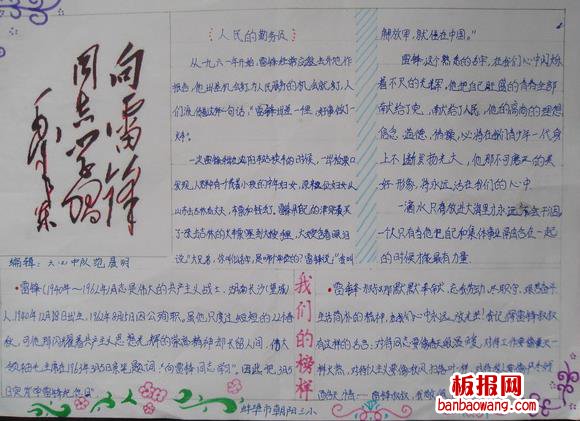 向雷锋
同志学习
毛泽东
编辑：六(4)中队 范晨明
人民的勤务员
从一九六一年开始,雷锋经常应邀去外地作
报告,他出差机会多了,为人民服务的机会就多,人
们流传着这样一句话：“雷锋出差一千里,好事做了一
火车”。
一次雷锋
发现,人群中有个背着小孩的中年妇女,原来
山东去吉林看丈夫,车票和钱丢了。雷锋用自己的津贴费买了
一张去吉林的火车票塞到大嫂手里,大嫂含着眼泪
说：“大兄弟,你叫什么名字,是哪个单位的?”
解放军,就住在中国。”
雷锋,这个熟悉的名字,在我们心中闪烁
着不尽的光辉,他把自己旺盛的青春全部
献给了党,献给了人民,他的高尚的理想
信念、道德、情操,必将在我们青少年一代身
上不断发扬光大,他那不可磨灭的美
好形象,将永远活在我们的心中
一滴水只有放进大海里才永远不会干涸,
一个人只有当他把自己和集体事业融合在一起
的时候才能最有力量
雷锋(1940年～1962年)同志是伟大的共产主义战士,湖南长沙(望城)
人,1940年12月18日出生,1962年8月15日因公殉职。虽他只度过短短的22个春
秋,可他那闪耀着共产主义思想光辉的崇高精神却长留人间,伟大
领袖毛主席1963年3月5日亲笔题词：“向雷锋同志学习”。因此,把3月5
日定为学雷锋纪念日”
我们的榜样
雷锋叔叔那默默奉献
生活简朴的精神,在我们心中永远
有这样的名言：对待同志要像春天般温暖,对待工作要像夏天一
样火热,对待个人主义要像秋风扫落叶一样,对待敌人要像严冬一样
蚌埠市朝阳三小
板报网
banbaowang.com